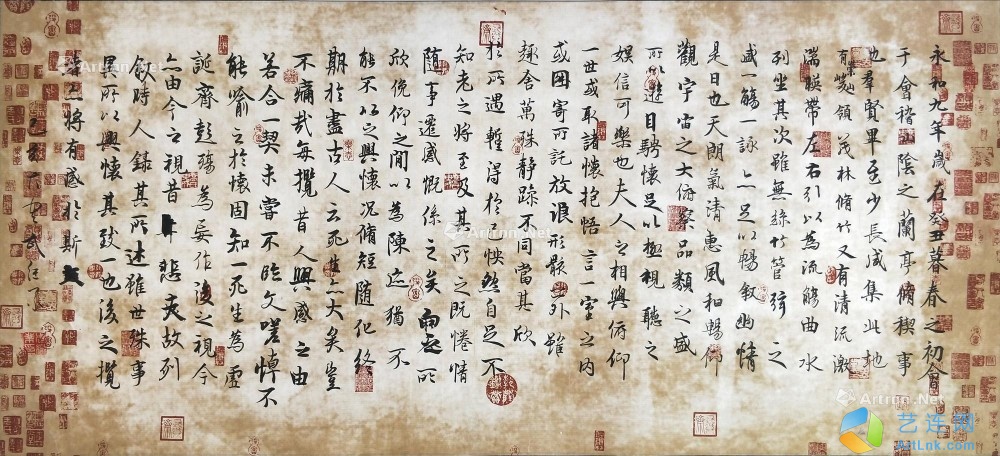 永和九年歲在癸丑暮春之初會
于會稽山陰之蘭亭脩稧事
也羣賢畢至少長咸集此地
有領茂林脩竹又有清流激
湍暎帶左右引以為流觴曲水
列坐其次雖無絲竹管弦之
盛一觴一詠亦足以暢敘幽情
是日也天朗氣清惠風和暢仰
觀宇宙之大俯察品類之盛
所以遊目騁懷足以極視聽之
娛信可樂也夫人之相與俯仰
一世或取諸懷抱悟言一室之內
或因寄所託放浪形骸之外雖
趣舍萬殊靜躁不同當其欣
於所遇暫得於己怏然自足不
知老之將至及其所之既惓情
隨事遷感慨係之矣向之所
欣俛仰之閒以為陳迹猶不
能不以之興懷況脩短隨化終
期於盡古人云死生亦大矣豈
不痛哉每攬昔人興感之由
若合一契未嘗不臨文嗟悼不
能喻之於懷固知一死生為虛
誕齊彭殤為妄作後之視今
亦由今之視昔悲夫故列
敘時人錄其所述雖世殊事
異所以興懷其致一也後之攬
者亦將有感於斯文
Artron.Net
艺连网
ArtLnk.com